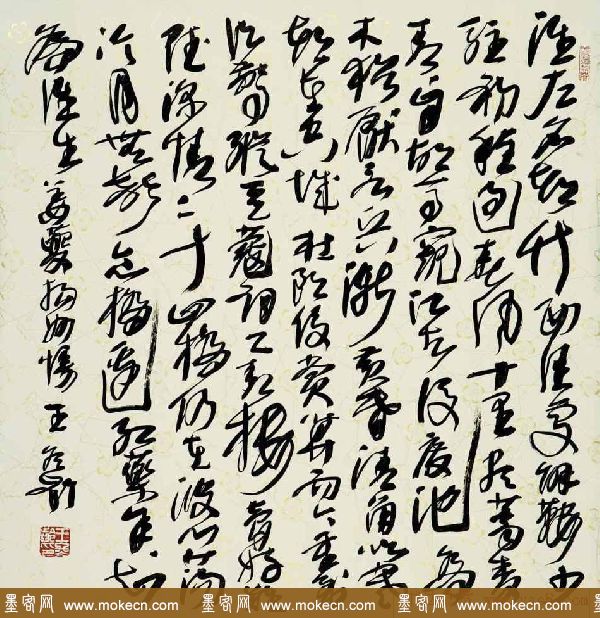 淮左名都竹西佳处解鞍少
驻初程过春风十里尽荠麦青
青自胡马窥江去后废池乔
木犹厌言兵渐黄昏清角吹寒
都在空城杜郎俊赏算而今重到
须惊纵豆蔻词工青楼梦好难
赋深情二十四桥仍在波心荡
冷月无声念桥边红药年年知
为谁生 姜夔扬州慢 王
墨客网 www.mokecn.com 墨客网 www.mokecn.com 墨客网 www.mokecn.com